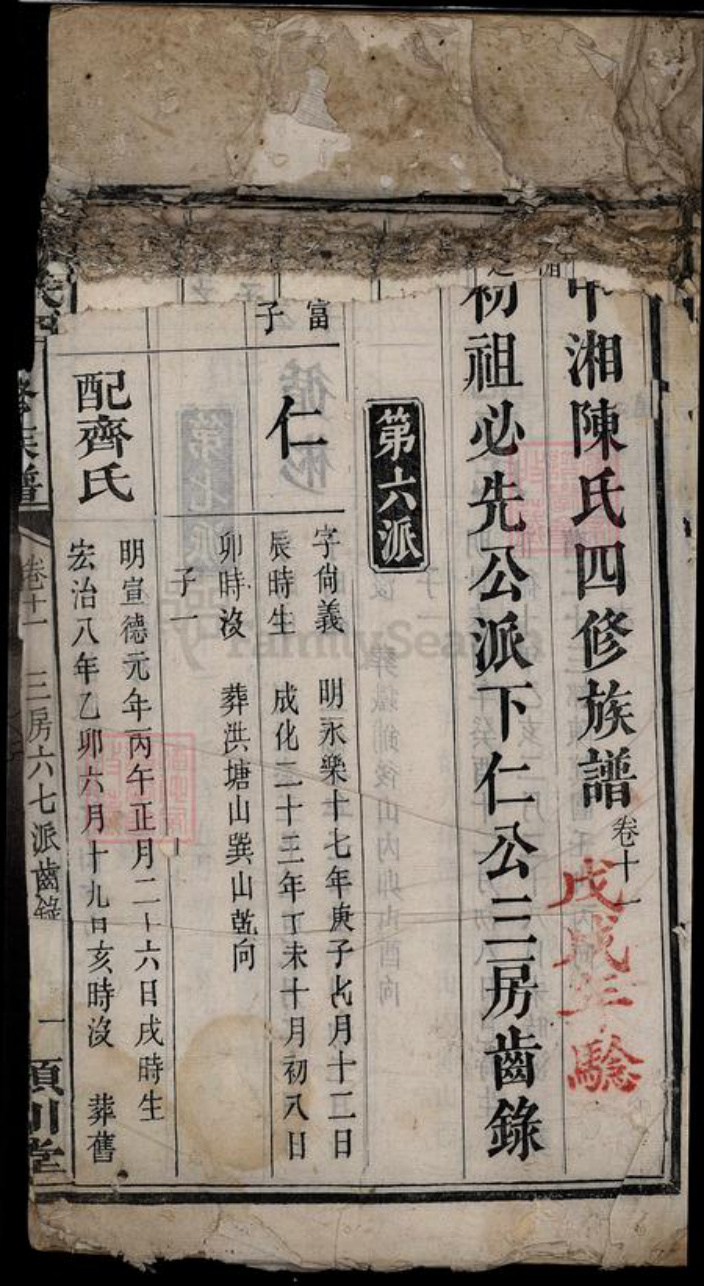 中湘陳氏四修族譜卷十一
戊戌年驗
初祖必先公派下仁公三房齒錄
第六派
富子
仁
字尙義 明永樂十七年庚子七月十二日
辰時生 成化二十三年丁未十月初八日
卯時沒 葬洪塘山巽山乾向
子一
配齊氏
明宣德元年丙午正月二十六日戌時生
宏治八年乙卯六月十九日亥時沒 葬舊
族譜
卷十一 三房六七派齒錄 一
FamilySearch